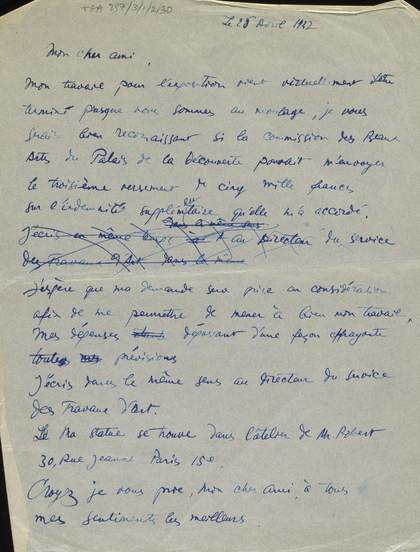 TGA 897/3/1/2/30
Le 28 Avril 1937
Mon cher ami,
Mon travail pour l'exposition vient virtuellement d'être
terminé puisque nous sommes au montage, je vous
serais bien reconnaissant si la commission des Beaux
Arts du Palais de la Découverte pouvait m'envoyer
le troisième versement de cinq mille francs
sur l'indemnité supplémentaire qu'elle m'a accordé.
dans le même sens
J'écris en même temps au Directeur du service
des Travaux d'Art dans le même
J'espère que ma demande sera prise en considération
afin de me permettre de mener à bien mon travail.
Mes dépenses dépassant d'une façon effrayante
toutes mes prévisions
J'écris dans le même sens au directeur du service
des Travaux d'Art.
Ma statue se trouve dans l'atelier de Mr. Robert
30, Rue Jeanne Paris 15e.
Croyez je vous prie, Mon cher ami, à tous
mes sentiments les meilleurs